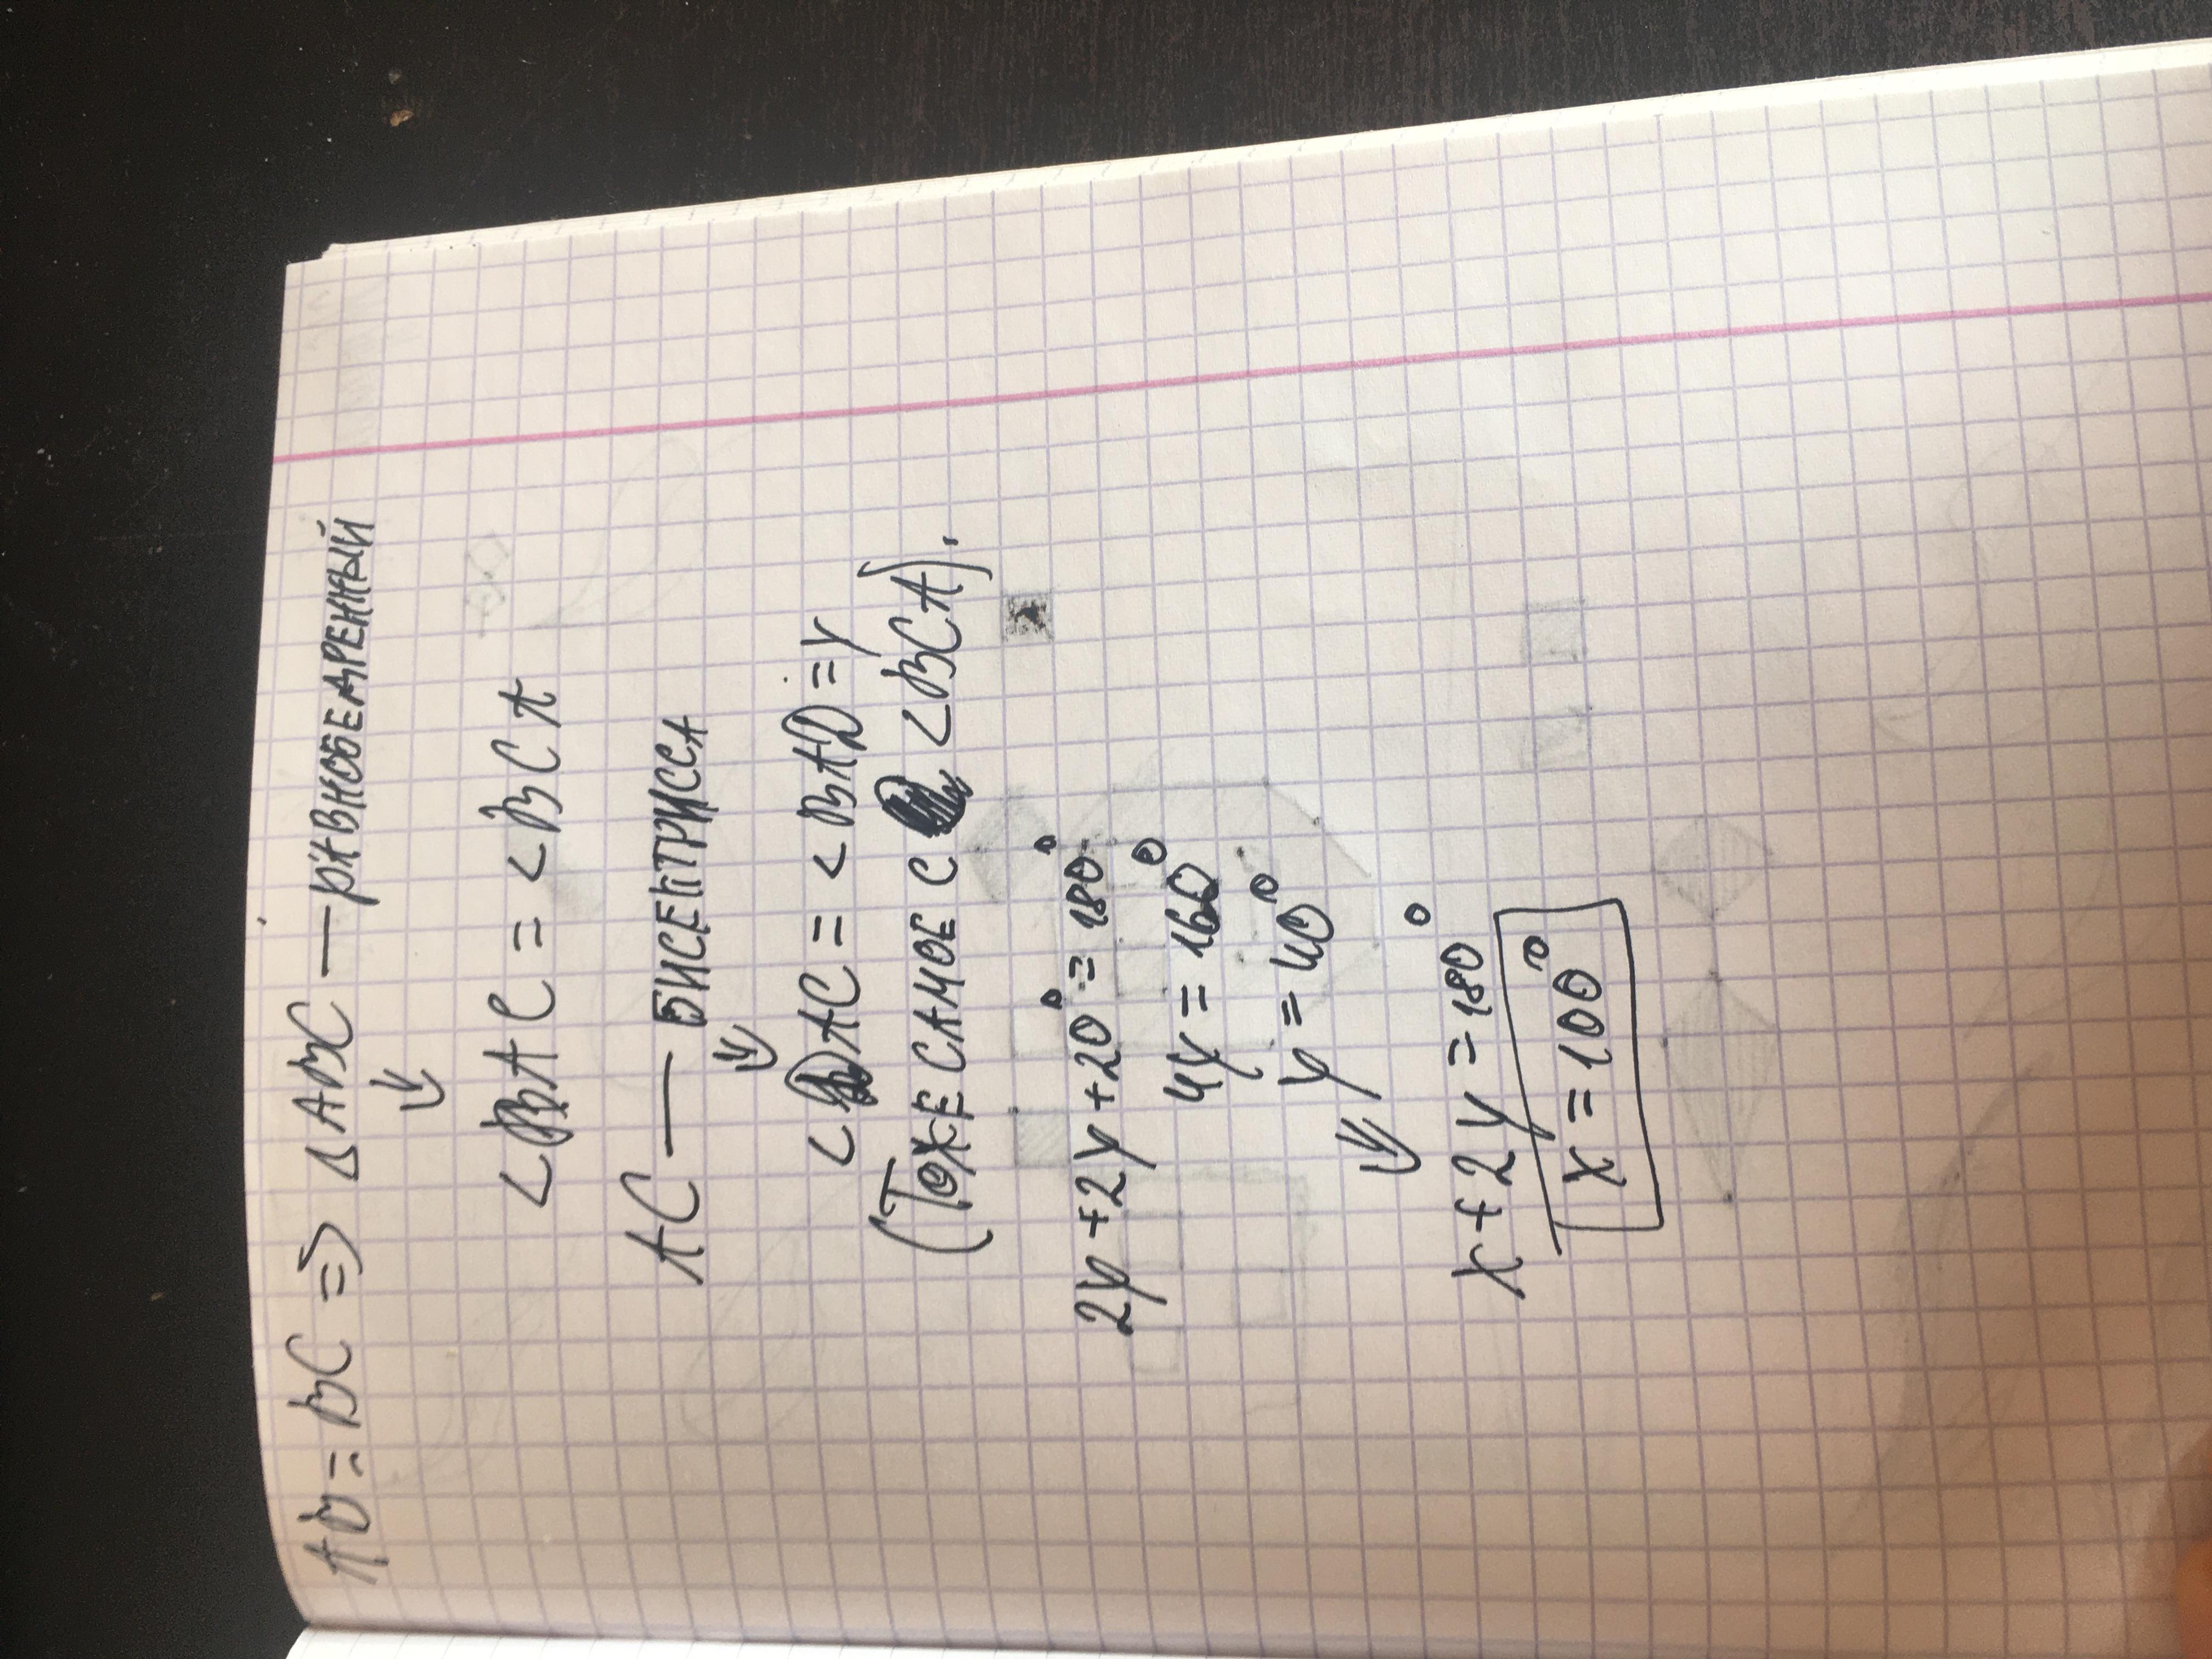 AB = BC => Δ ABC — РАВНОБЕДРЕННЫЙ
∠BAC = ∠BCA
AC — БИСЕКТРИССА
∠BAC = ∠BAD = y
(ТОЖЕ САМОЕ С ∠BCA).
2y + 2y + 20° = 180°
4y = 160°
y = 40°
x + 2y = 180°
x = 100°